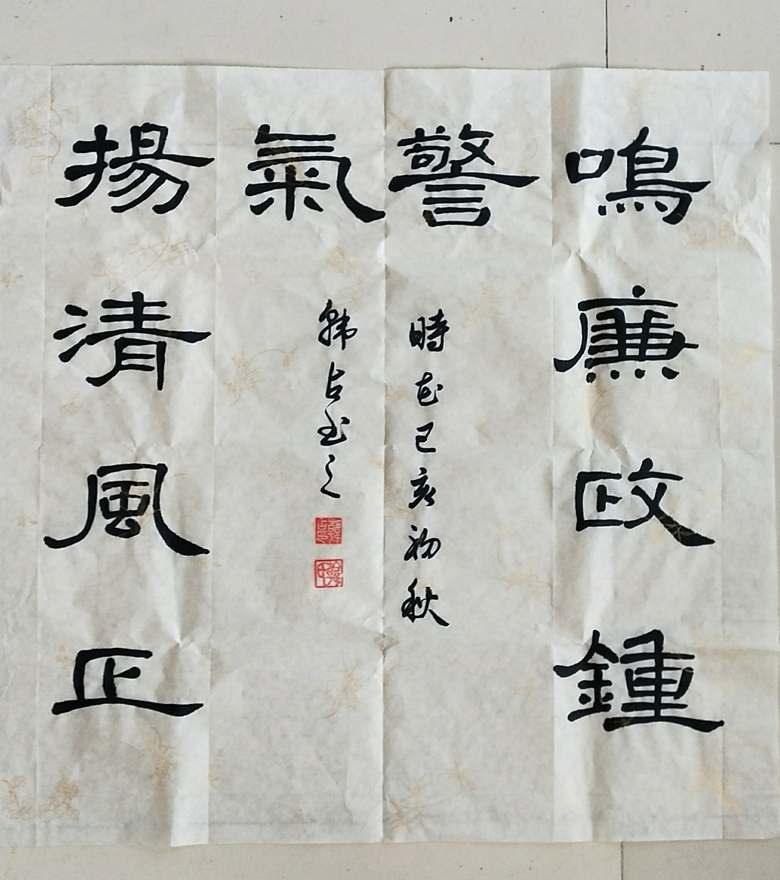 鳴廉政鍾
警
時在己亥初秋
氣
韩占玉之
揚清風正